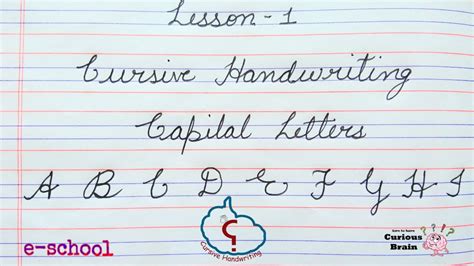 Lesson-1
Cursive Handwriting
Capital Letters
A B C D E F G H I
e-school
Cursive Handwriting
Learn to learn
Curious
Brain